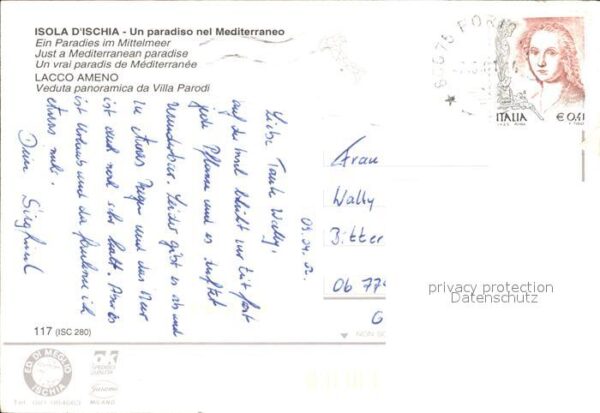 ISOLA D'ISCHIA - Un paradiso nel Mediterraneo
Ein Paradies im Mittelmeer
Just a Mediterranean paradise
Un vrai paradis de Méditerranée
LACCO AMENO
Veduta panoramica da Villa Parodi
80075 FORIO
ITALIA
€ 0,41
09.04.02.
Liebe Tante Wally,
auf der Insel blüht zur Zeit fast
jede Pflanze und es duftet
wunderbar. Leider gibt es ab und
zu etwas Regen und das Meer
ist auch noch sehr kalt.
ist Urlaub und da ich
etwas mehr.
Dein Siegfried
Frau
Wally
Bitter
06 774
privacy protection
Datenschutz
117 (ISC 280)
NON SC
ED. DI MEGLIO
ISCHIA
MILANO